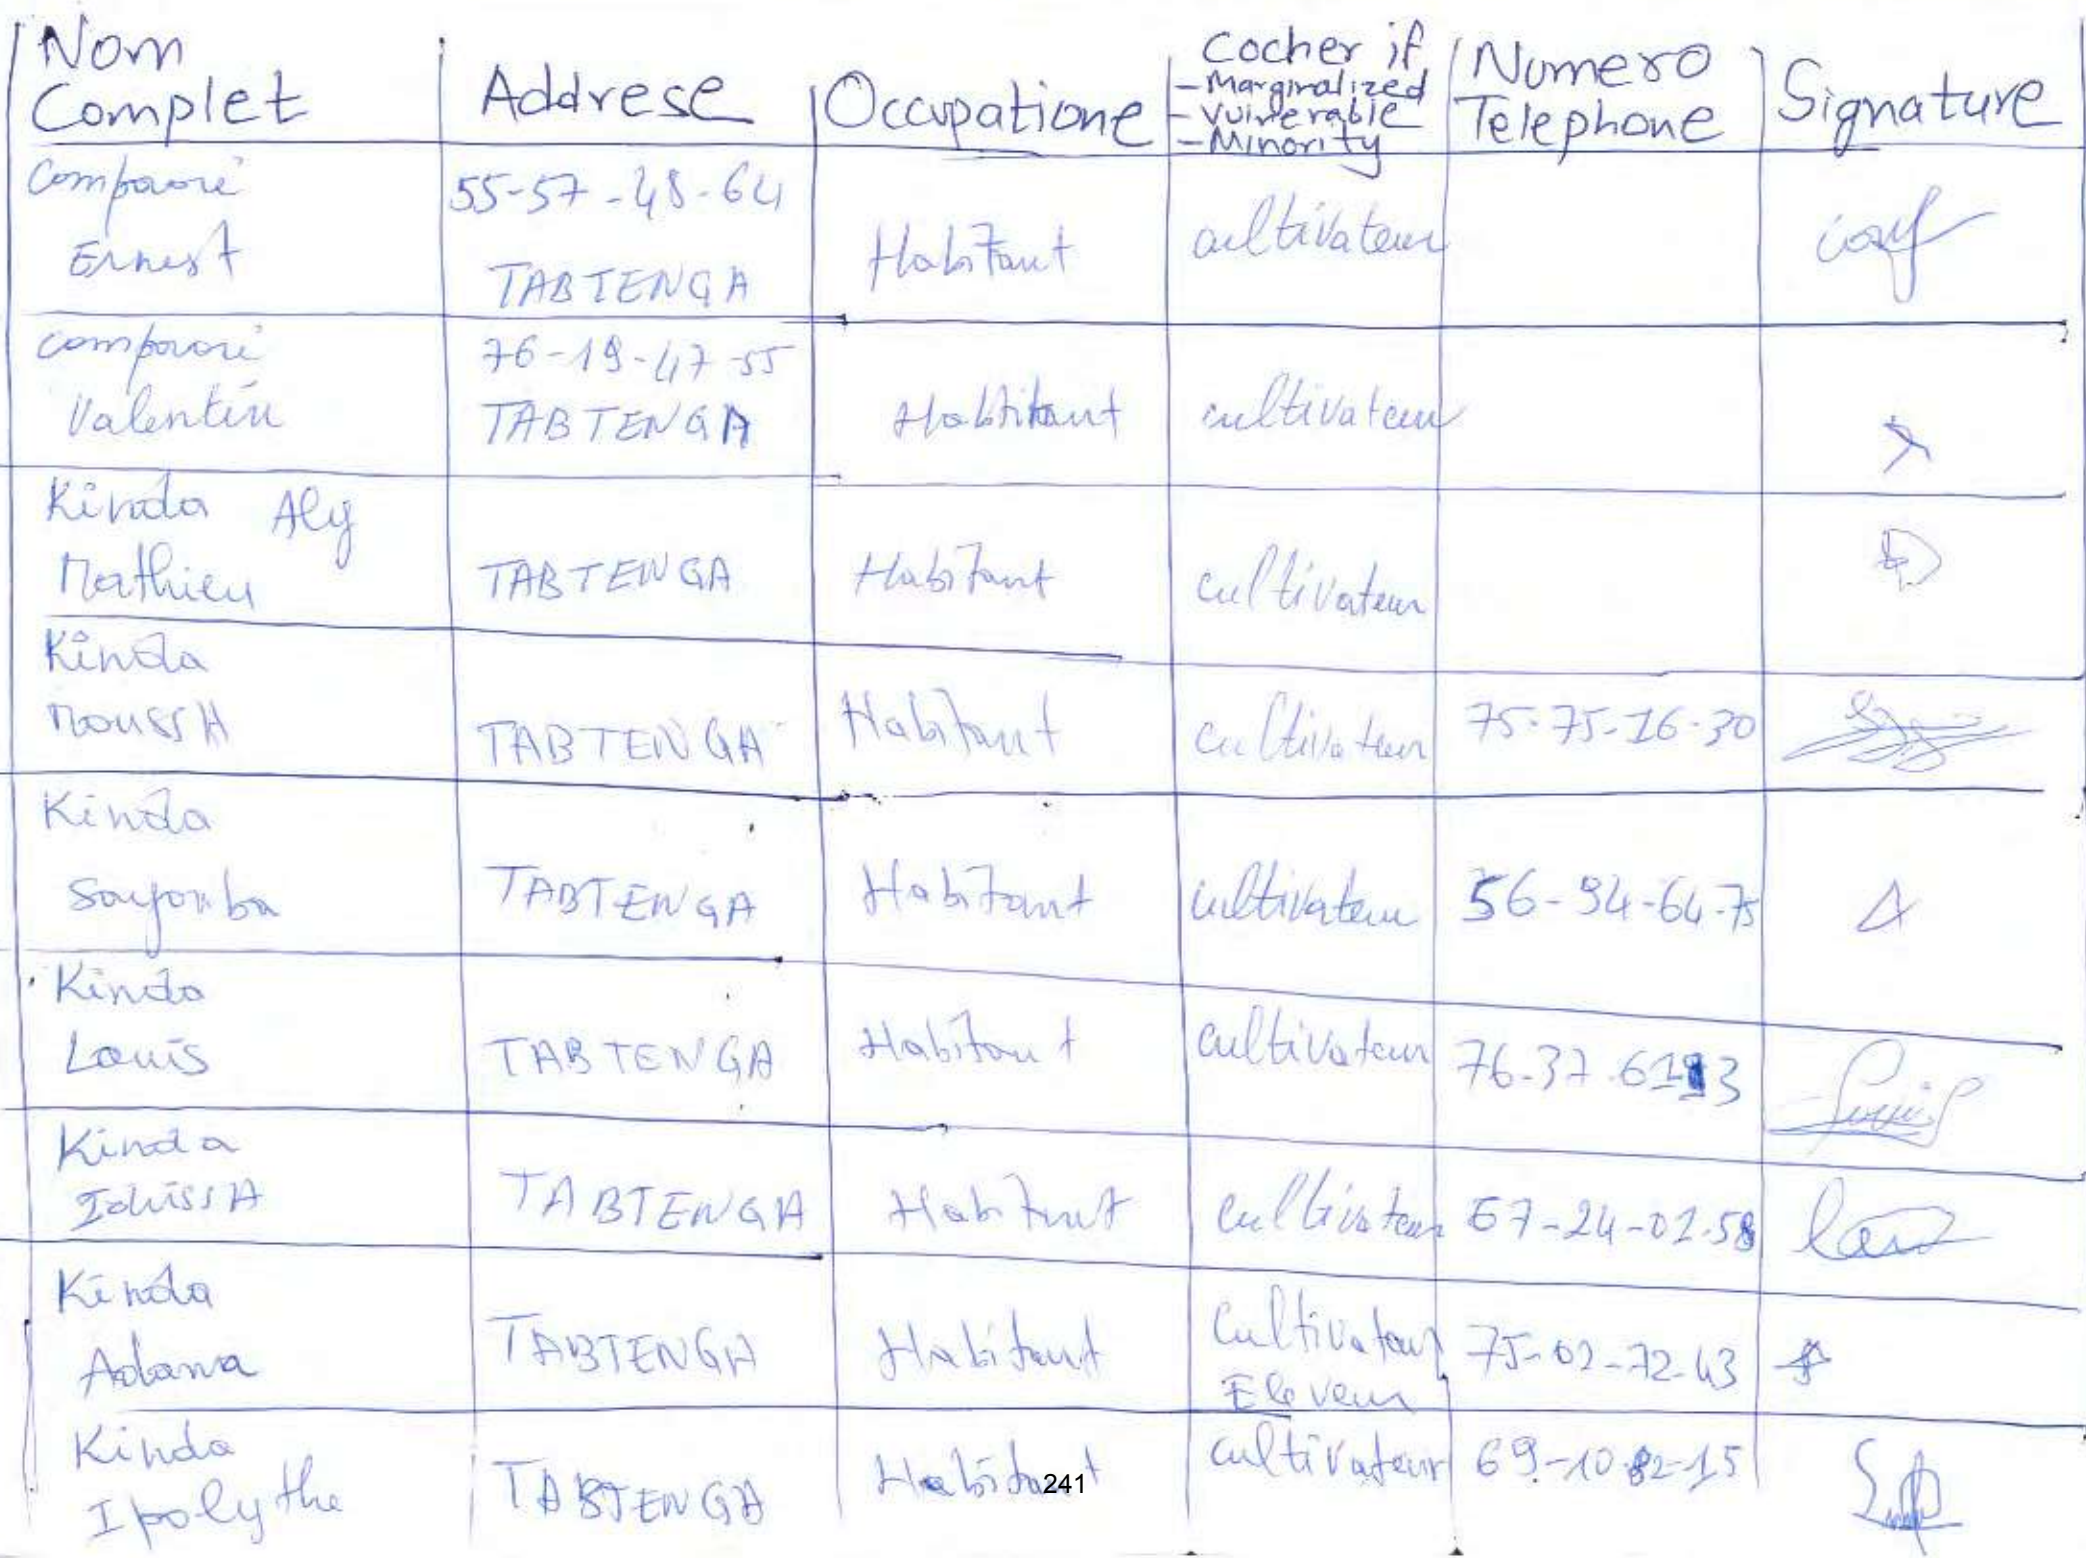 Nom Complet Addrese Occupatione Cocher if -Marginalized -Vulnerable -Minority Numero Telephone Signature
Compaoré Ernest 55-57-48-64 TABTENGA Habitant cultivateur
Compaoré Valentin 76-19-47-55 TABTENGA Habtitant cultivateur
Kinda Aly Mathieu TABTENGA Habitant cultivateur
Kinda MoussA TABTENGA Habitant cultivateur 75-75-16-30
Kinda TABTENGA Habitant cultivateur 56-94-64-75
Kinda Louis TABTENGA Habitant cultivateur 76-37
Kinda IdrissA TABTENGA Habitant cultivateur 67-24-01-58
Kinda Adama TABTENGA Habitant Cultivateur Eleveur 75-02-72-43
Kinda Ipolythe TABTENGA Habitant cultivateur 69-10-82-15
241